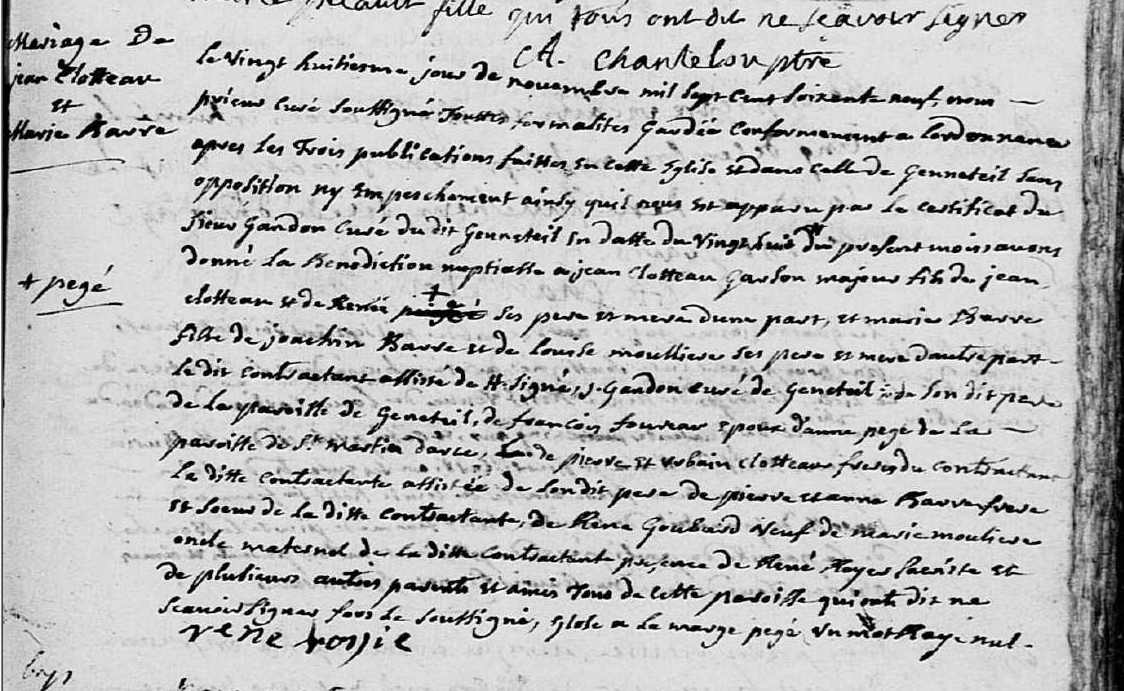 fille qui tous ont dit ne sçavoir signer
A. Chanteloup ptre
Mariage De
jean Clotteau
et
Marie Barre
le vingt huitiesme jour de novembre mil sept cent soixente neuf, nous
prieur curé soussigné touttes formalites Gardée conformement a lordonnance
apres les Trois publications faittes en cette Eglise et dans celle de Genneteil sans
opposition ny Empeschement ainsy quil nous est apparu par le certificat du
sieur Gandon curé du dit Genneteil en datte du vingt huit du present mois avons
donné la Benediction nuptialle a jean Clotteau garson majeur fils de jean
+ pegé
clotteau et de Renée + ses pere et mere dune part, et marie Barre
fille de joachin Barre et de louise moulliere ses pere et mere dautre part
le dit contractant assisté de Gandon curé de Geneteil, de son dit pere
de la paroisse de Geneteil, de françois epoux d'anne pegé de la
paroisse de St martin darce, de pierre et urbain clotteau freres du contractant
la ditte contractante assistée de son dit pere de pierre et anne Barre frere
et soeur de la ditte contractante, de René Goubard veuf de marie mouliere
oncle maternel de la ditte contractante presence de René et
de plusieurs autres parents et amis tous de cette paroisse qui ont dit ne
scavoir signer fors le soussigné, glose a la marge pegé, un mot Rayé nul.
rene